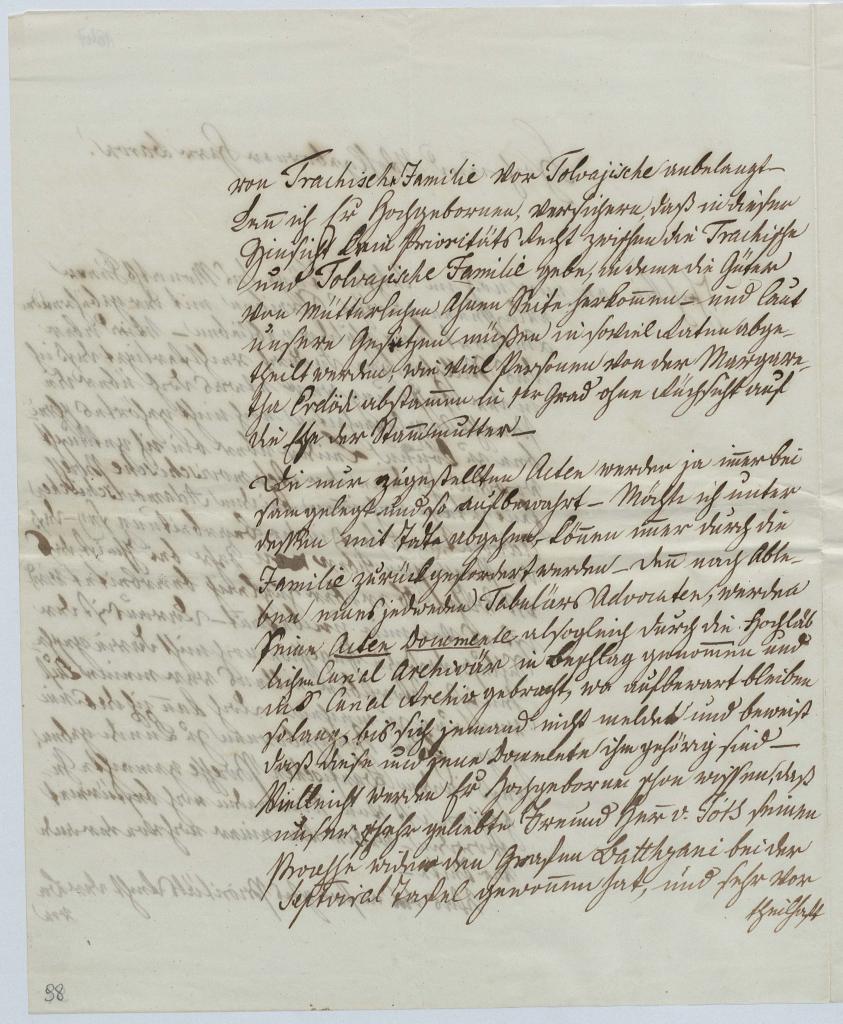 von Trachische Familie vor Tolvajische anbelangt –
kann ich Er Hochgebornen, versichern, daß in dieser
Hinsicht kein Prioritäts Recht zwischen die Trachische
und Tolvajische Familie gebe, in deme die Güter
von Mütterlichen Ahnen Seite herkommen – und laut
unsere Gesetzen müßen in soviel Raten abge-
theilt werden, wie viel Personen von der Margare-
tha Erdödi abstammen in Grad ohne Rücksicht auf
die Ehe der Stammmutter –
Die mir zugestellten Acten werden ja immer bei
sam gelegt und so aufbewahrt – Möchte ich unter
dessen mit Tode abgehen, können immer durch die
Familie zurück gefordert werden – denn nach Able-
ben eines jedweden Tabulärs Advocaten, werden
seine Acten Documente alsogleich durch die Hochlöb
lichen Curial Archivär in Beschlag genommen und
ins Curial Archiv gebracht, wo aufbewart bleiben
solang, bis sich jemand nicht meldet und beweist
daß diese und jene Documente ihm gehörig sind –
Vielleicht werden Er Hochgeborner schon wissen, daß
unser sehr geliebte Freund Herr v. Tóth seinen
Processe wider den Grafen Batthyani bei der
Septviral Tafel gewonnen hat, und sehr vor
theilhaft
38